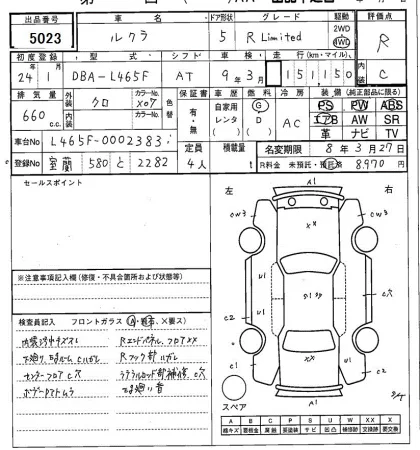 出品番号 車名 ドア形状 グレード 駆動 評価点
5023 ルクラ 5 R Limited 2WD 4WD R
初度登録 型式 シフト 車検 走行(km・マイル) 内装
24年1月 DBA-L465F AT 9年3月 151,150 C
排気量 外装 カラーNo. 色替 保証書 車歴 燃料 冷房 装備(純正部品に限る)
660 c.c. クロ X07 有・無 自家用 レンタ ( ) G D ( ) AC PS PW ABS
内装 カラーNo. エアB AW SR
革 ナビ TV
車台No L465F-0002383 定員 積載量 名変期限 8年3月27日
登録No 室蘭 580 と 2282 4人 t R料金 未預託・預託済 8,970円
セールスポイント
左 右
A1
CW3 CW3
XX
U1
C2
C穴
U1
C1
XX
U1
C2
A1
スペア
※注意事項記入欄(修復・不具合箇所および状態等)
検査員記入 フロントガラス(A・飛石、×要ス)
内装 キズスレ Rエンドパネル、フロアXX
下廻り、 ルーム Cハガレ Rフック部ハガレ
センターフロアC穴 補修、C穴
ボデー 下廻り音
A B C P S U W XX X
線キズ 蓄積金 腐触 要塗装 サビ 凹凸 補修跡 交換跡 要交換